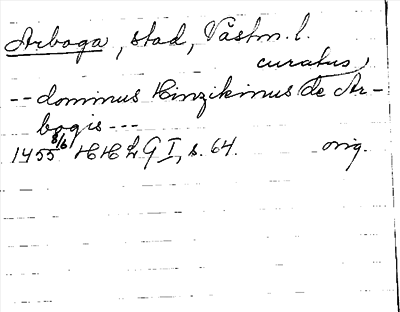 Arboga, stad, Västm. l.
curatus,
-- dominus Hinzikinus de Ar-
bogis ---
1455 8/6 HHLG I, s. 64. orig.